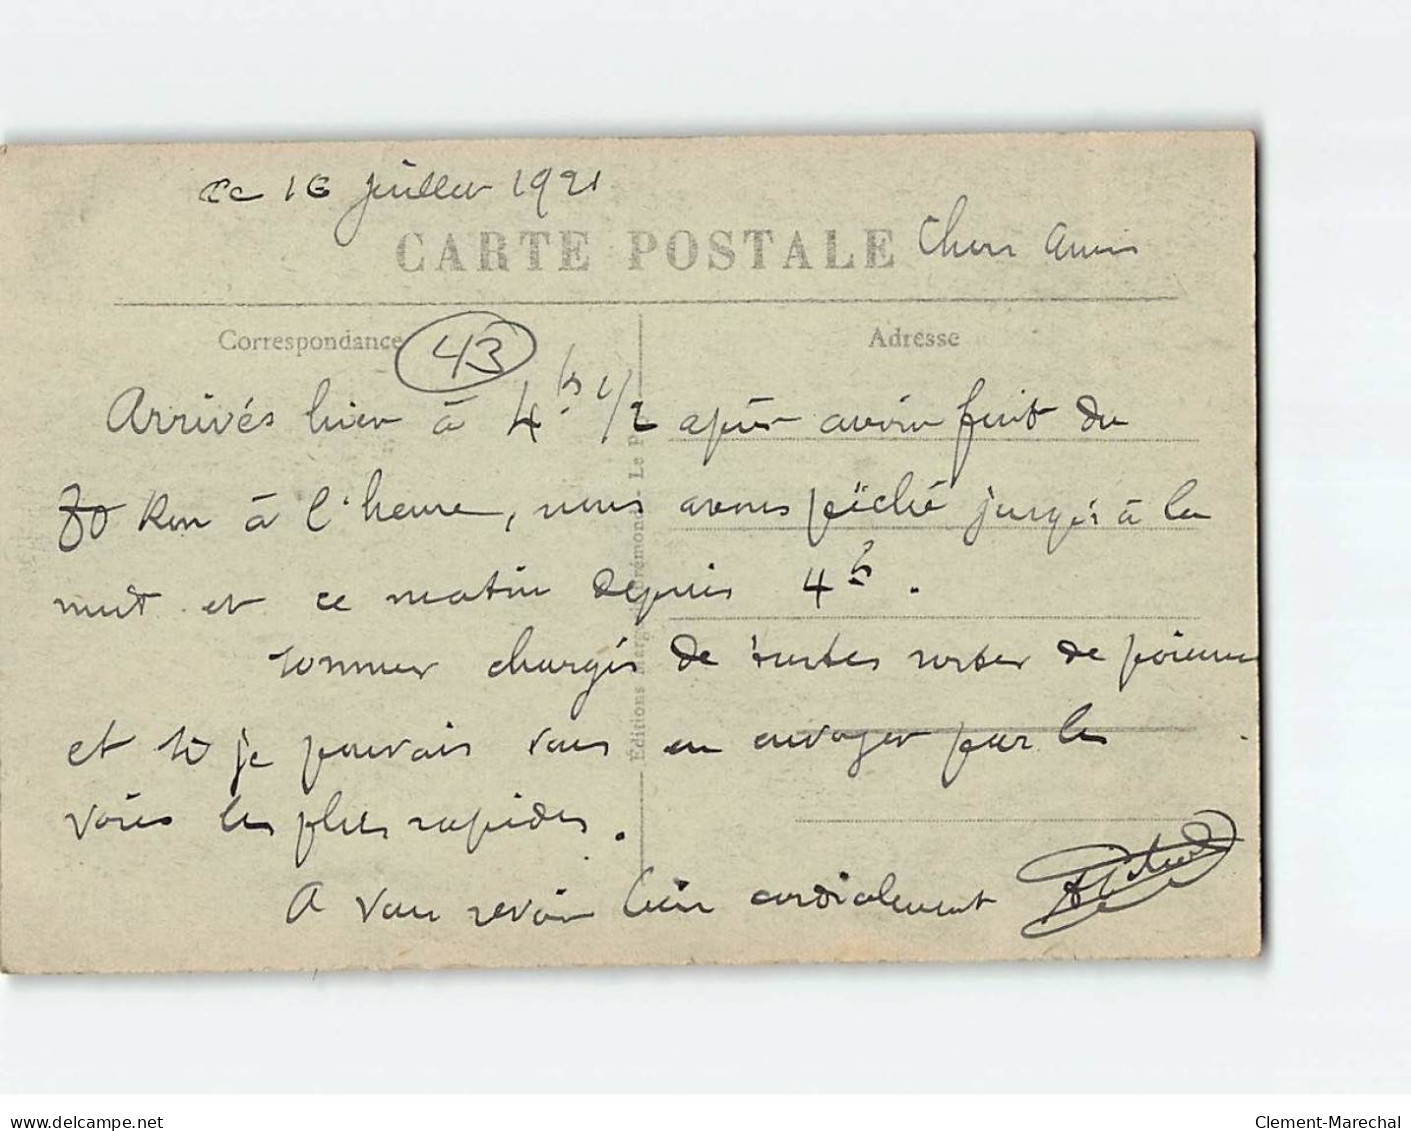 Ce 16 juillet 1921
CARTE POSTALE
Chers Amis
Correspondance
43
Adresse
Arrivés hier à 4h 1/2 après avoir fait du
70 Km à l'heure, nous avons pêché jusqu'à la
nuit et ce matin depuis 4h.
sommes chargés de toutes sortes de poissons
et si je pouvais vous en envoyer par les
voies les plus rapides.
A vous revoir bien cordialement
Éditions Margerit-Brémond - Le P
www.delcampe.net
Clement-Marechal